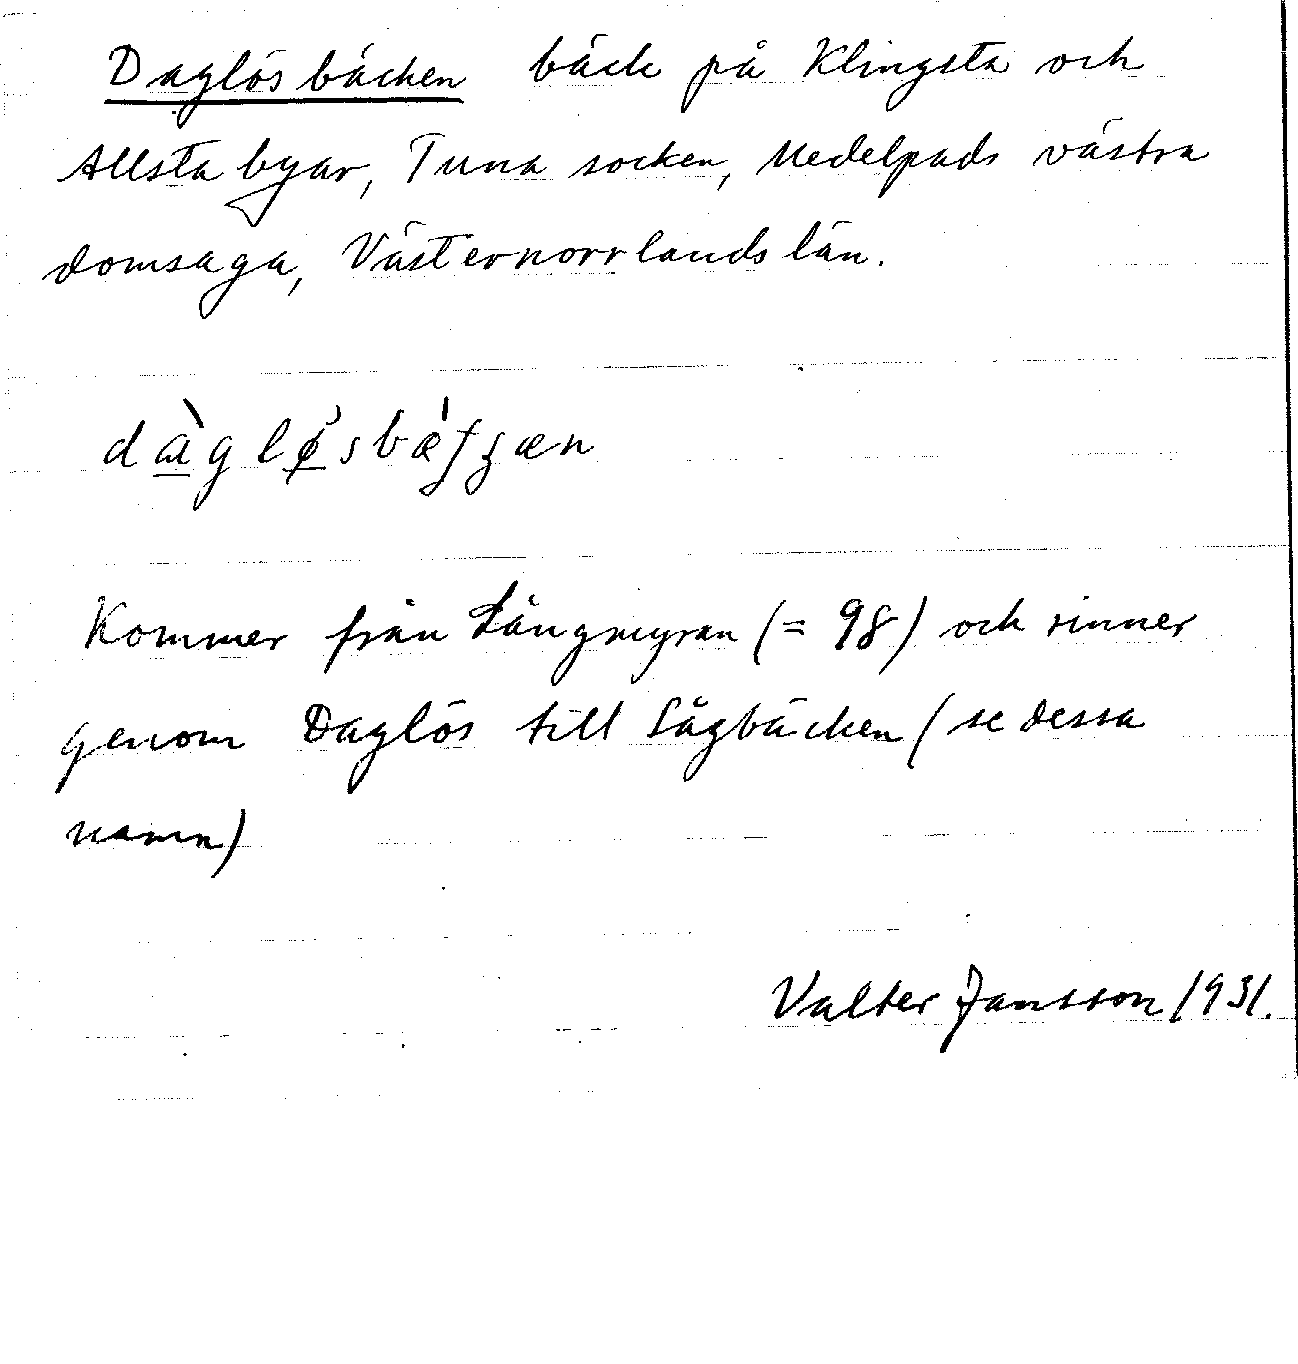 Daglösbäcken bäck på Klingsta och
Allsta byar, Tuna socken, Medelpads västra
domsaga, Västernorrlands län.
Kommer från Långmyran (= 98) och rinner
genom Daglös till Sågbäcken (se dessa
namn)
Valter Jansson 1931.